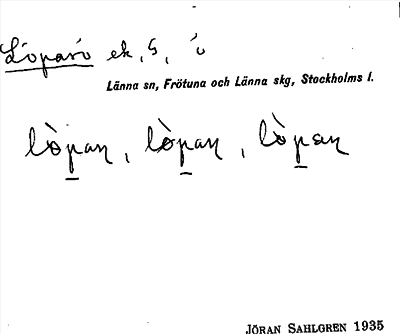 Löparö ek, S, ö
Länna sn, Frötuna och Länna skg, Stockholms l.
lò̀pan, lò̀pan, lò̀pan
JÖRAN SAHLGREN 1935